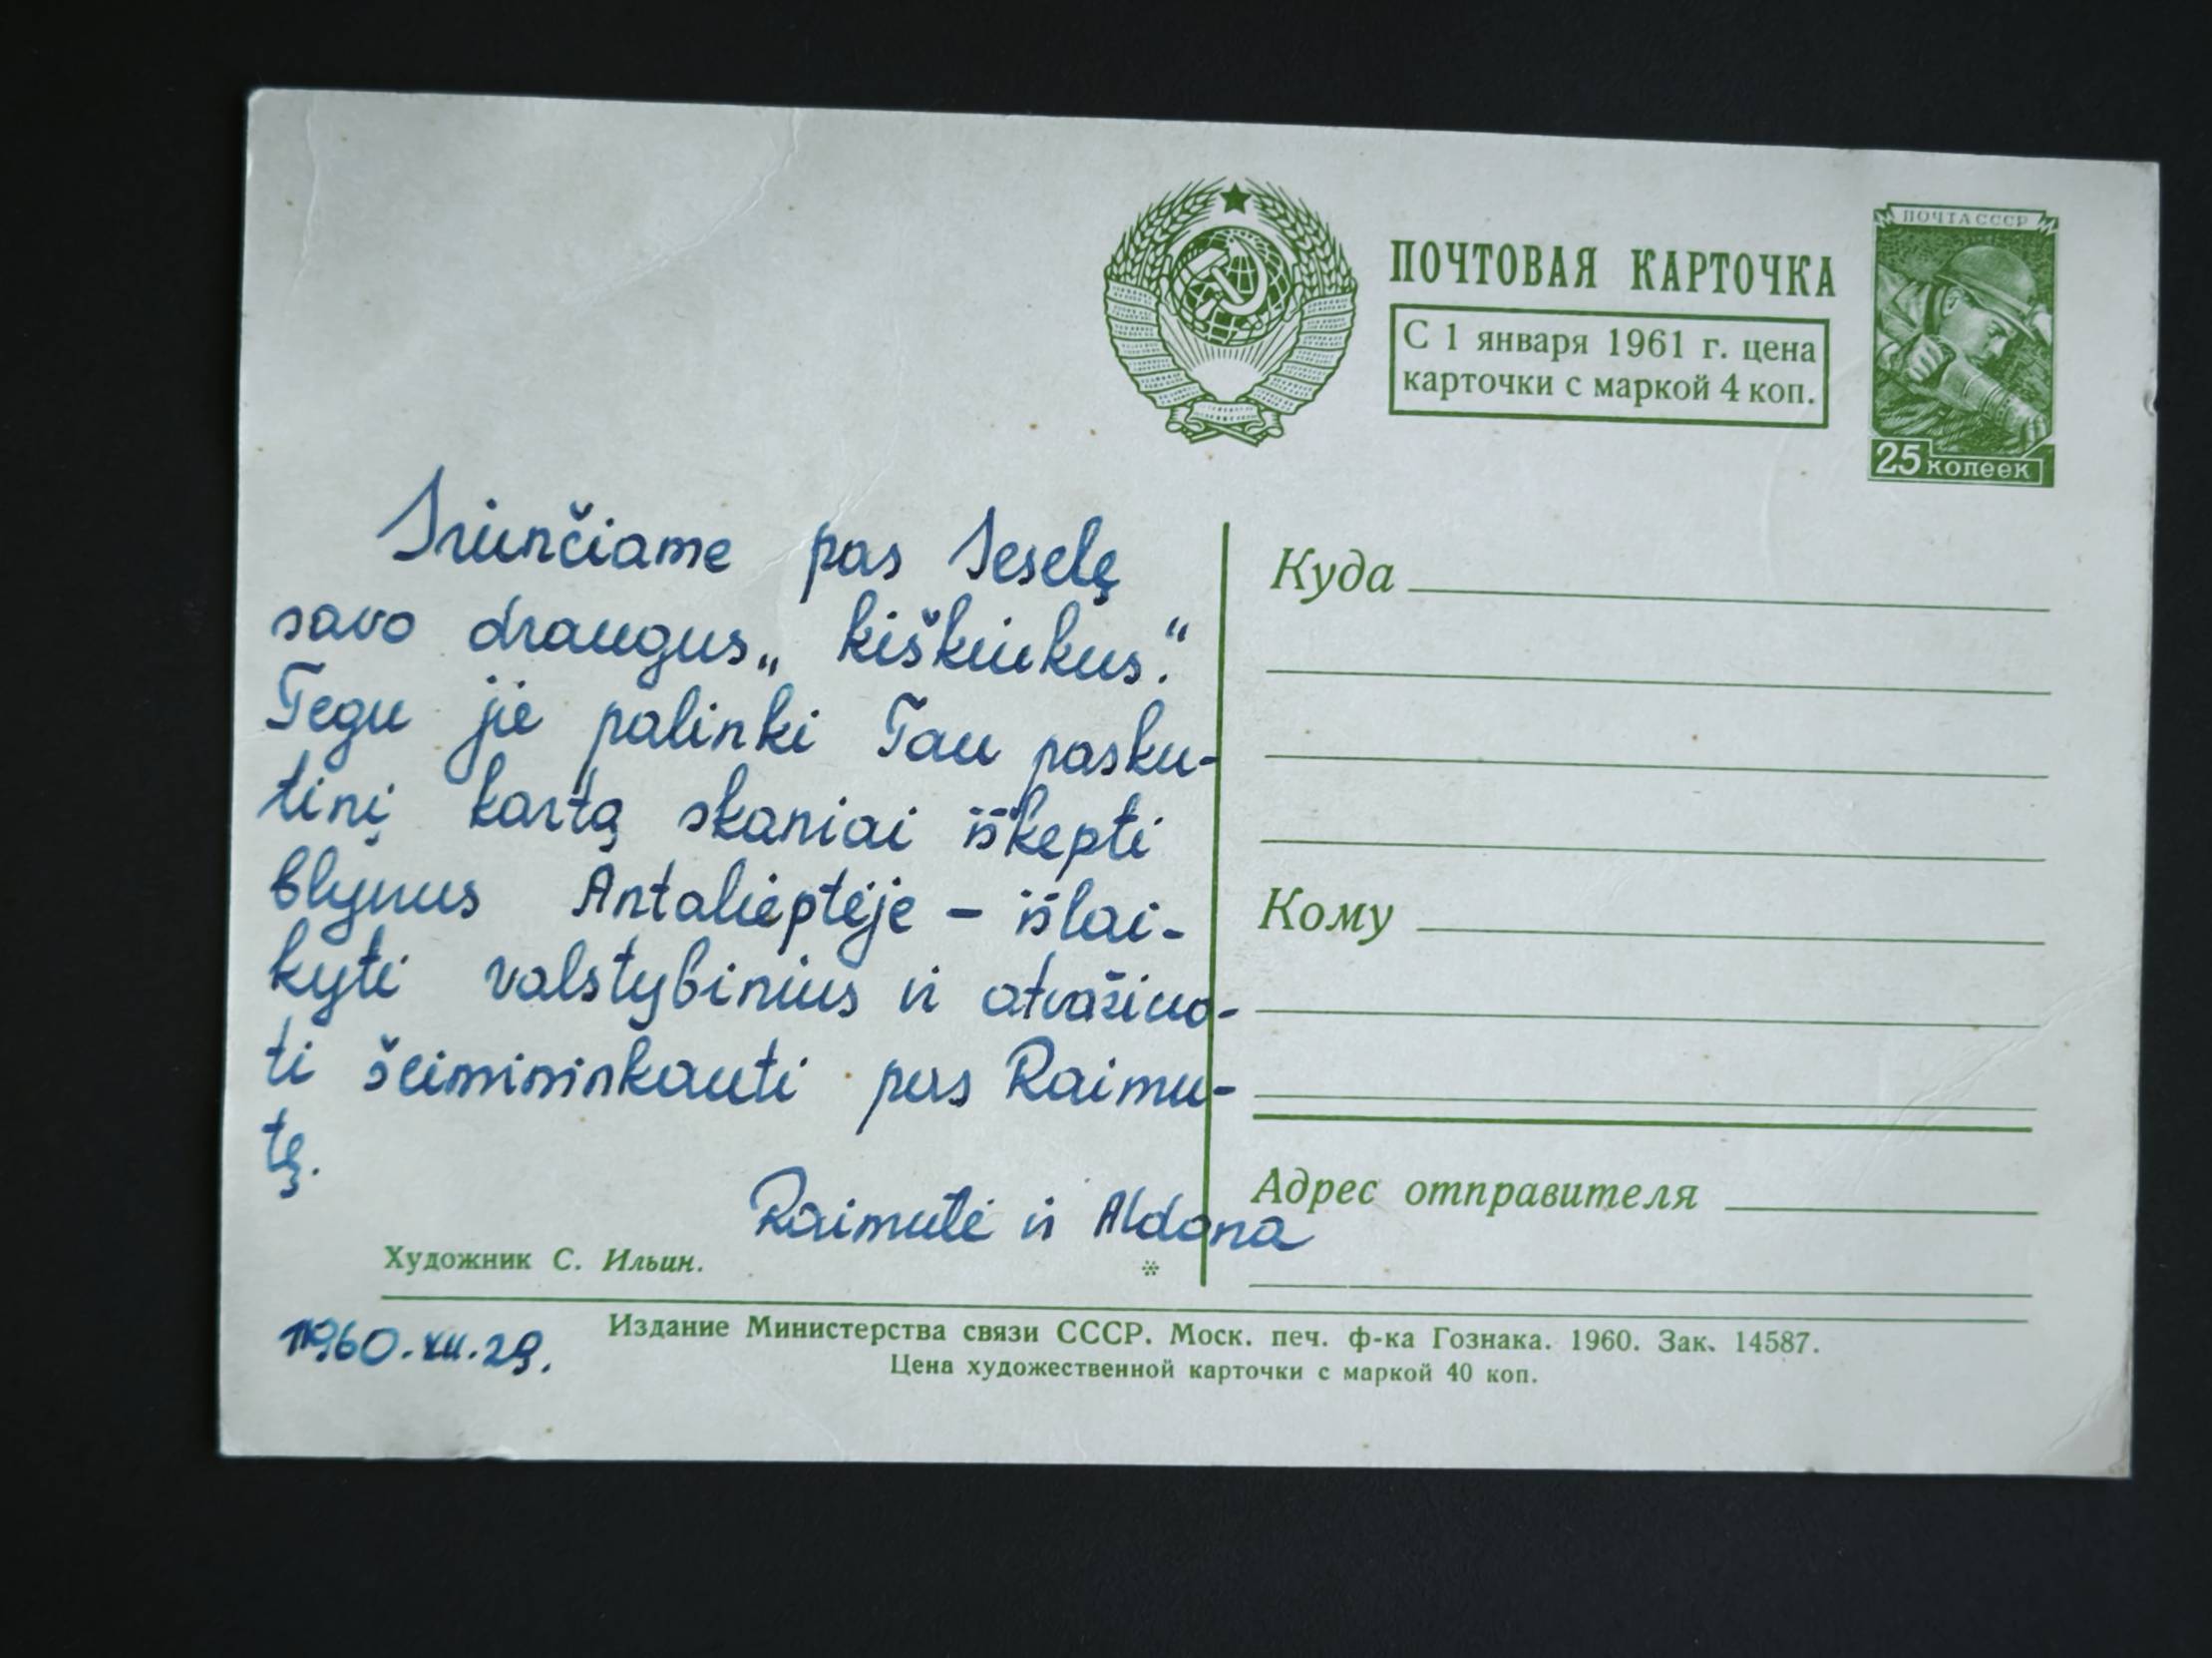 ПОЧТОВАЯ КАРТОЧКА
С 1 января 1961 г. цена
карточки с маркой 4 коп.
ПОЧТА СССР
25 копеек
Siunčiame pas Seselę
savo draugus „kiškiukus."
Tegu jie palinki Tau pasku-
tinį kartą skaniai iškepti
blynus Antalieptėje – išlai-
kyti valstybinius ir atvažiuo-
ti šeimininkauti pas Raimu-
tę.
Raimutė ir Aldona
1960.XII.29.
Куда
Кому
Адрес отправителя
Художник С. Ильин.
*
Издание Министерства связи СССР. Моск. печ. ф-ка Гознака. 1960. Зак. 14587.
Цена художественной карточки с маркой 40 коп.